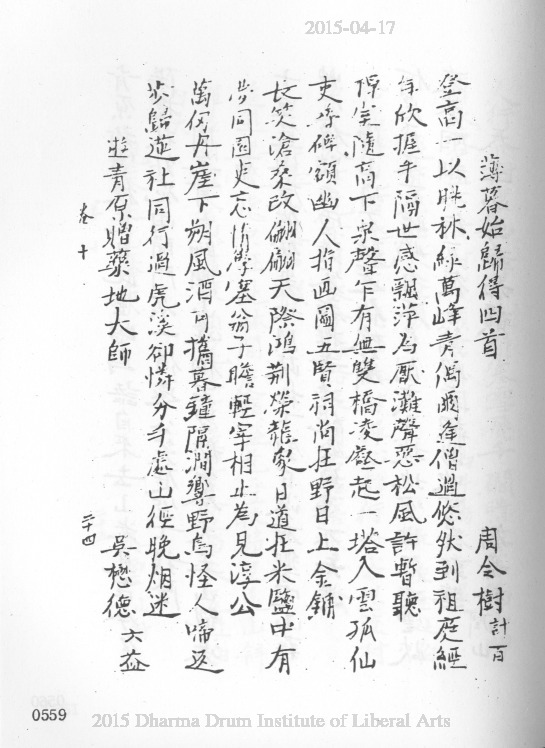 2015-04-17
薄暮始歸得四首 周令樹 計百
登高一以眺林綠萬峰青偶爾逢僧過悠然到祖庭經
年欣握手隔世感飄萍為厭灘聲惡松風許暫聽
隨高下泉聲乍有無雙橋凌壑起一塔入雲孤仙
吏尋碑額幽人指画圖五賢祠尚在野日上金鋪
長笑滄桑改翩翩天際鴻荆榮龍象日道在米鹽中有
步同園吏忘情學塞翁子瞻輕宰相止為見淳公
萬仞丹崖下朔風酒可攜暮鐘隔澗響野鳥怪人啼返
步歸蓮社同行過虎溪卻憐分手處山徑晚烟迷
遊青原贈藥地大師 吳懋德 六益
卷十 二十四
0559
2015 Dharma Drum Institute of Liberal Arts